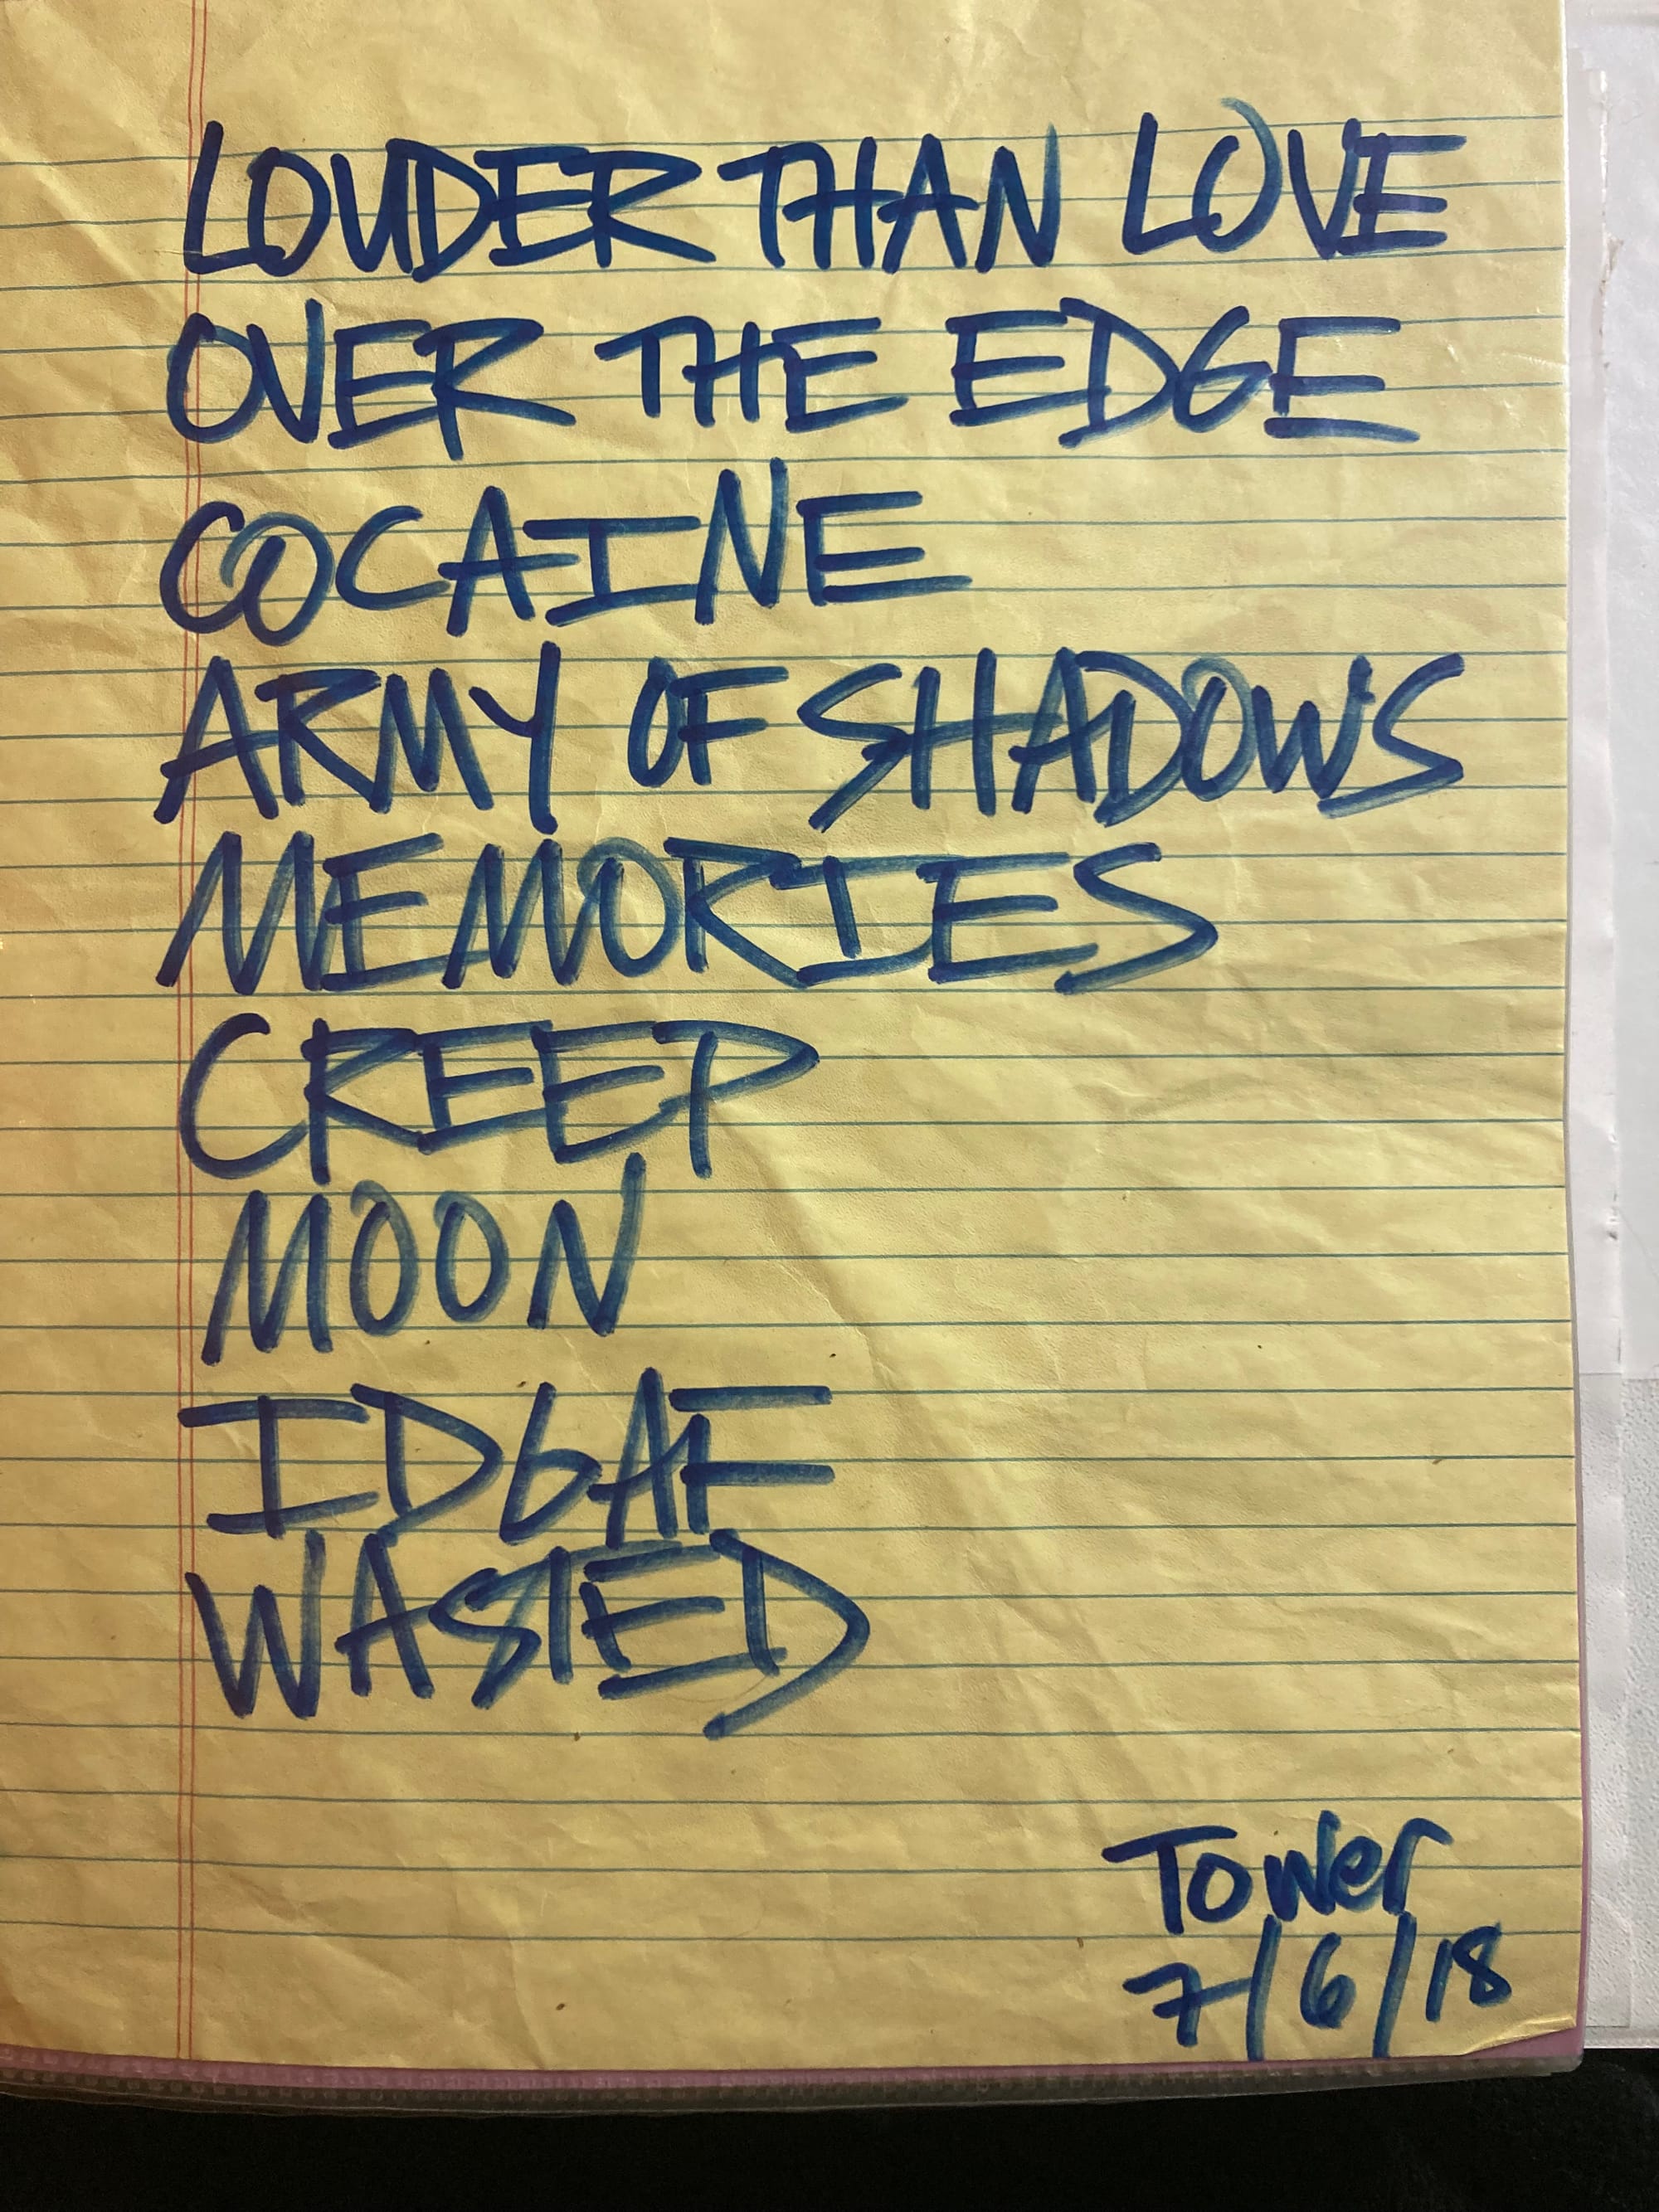 LOUDER THAN LOVE
OVER THE EDGE
COCAINE
ARMY OF SHADOWS
MEMORIES
CREEP
MOON
IDGAF
WASTED
Tower
7/6/18